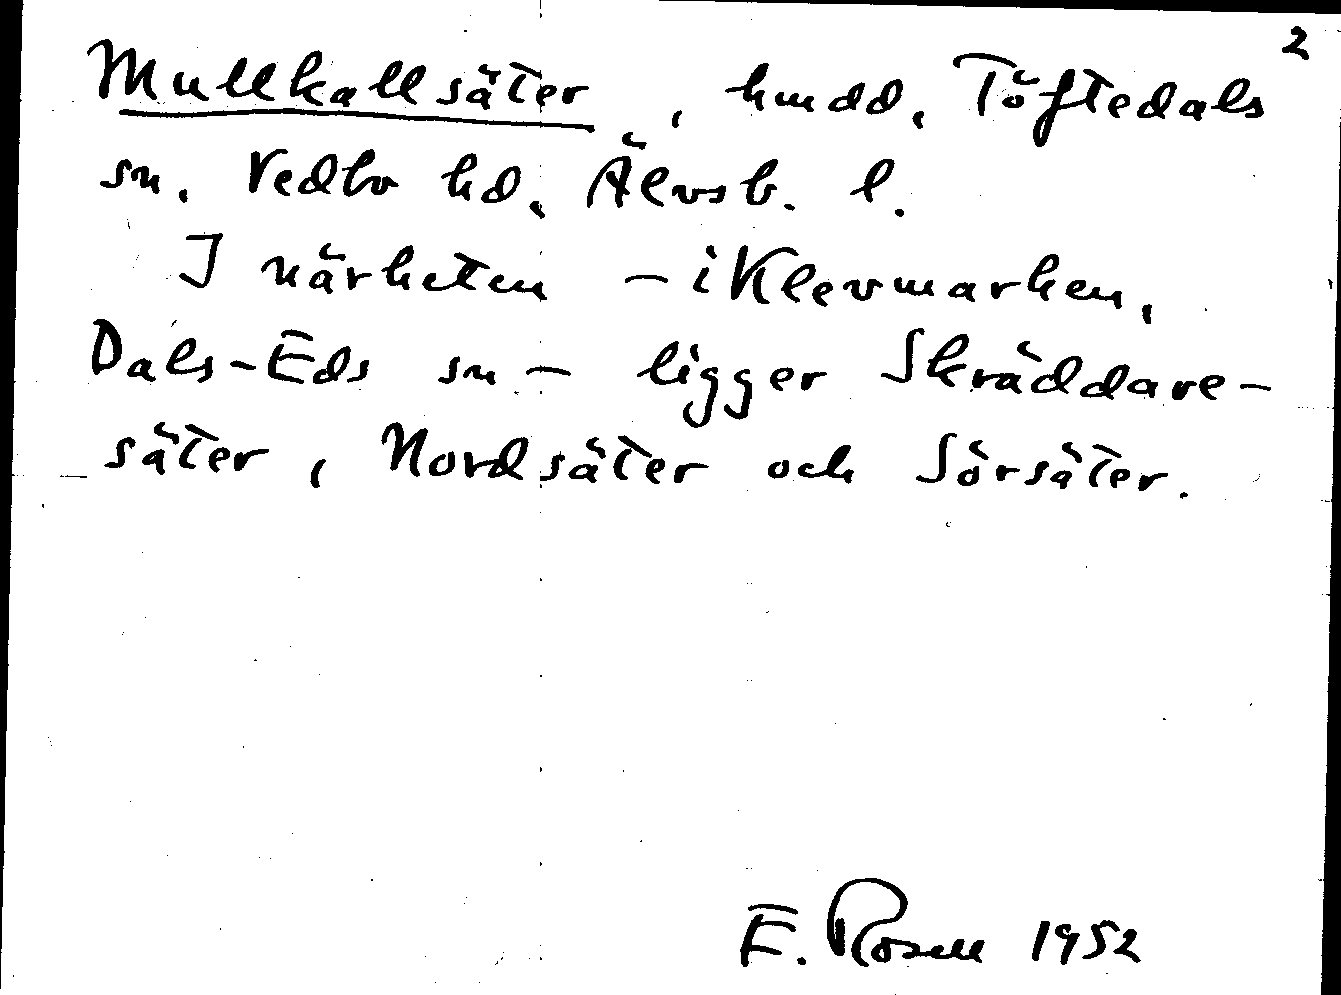 2
Mullkallsäter, hmdd, Töftedals
sn. Vedbo hd, Älvsb. l.
I närheten – i Klevmarken,
Dals-Eds sn – ligger Skräddare-
säter, Nordsäter och Sörsäter.
E. Rosell 1952